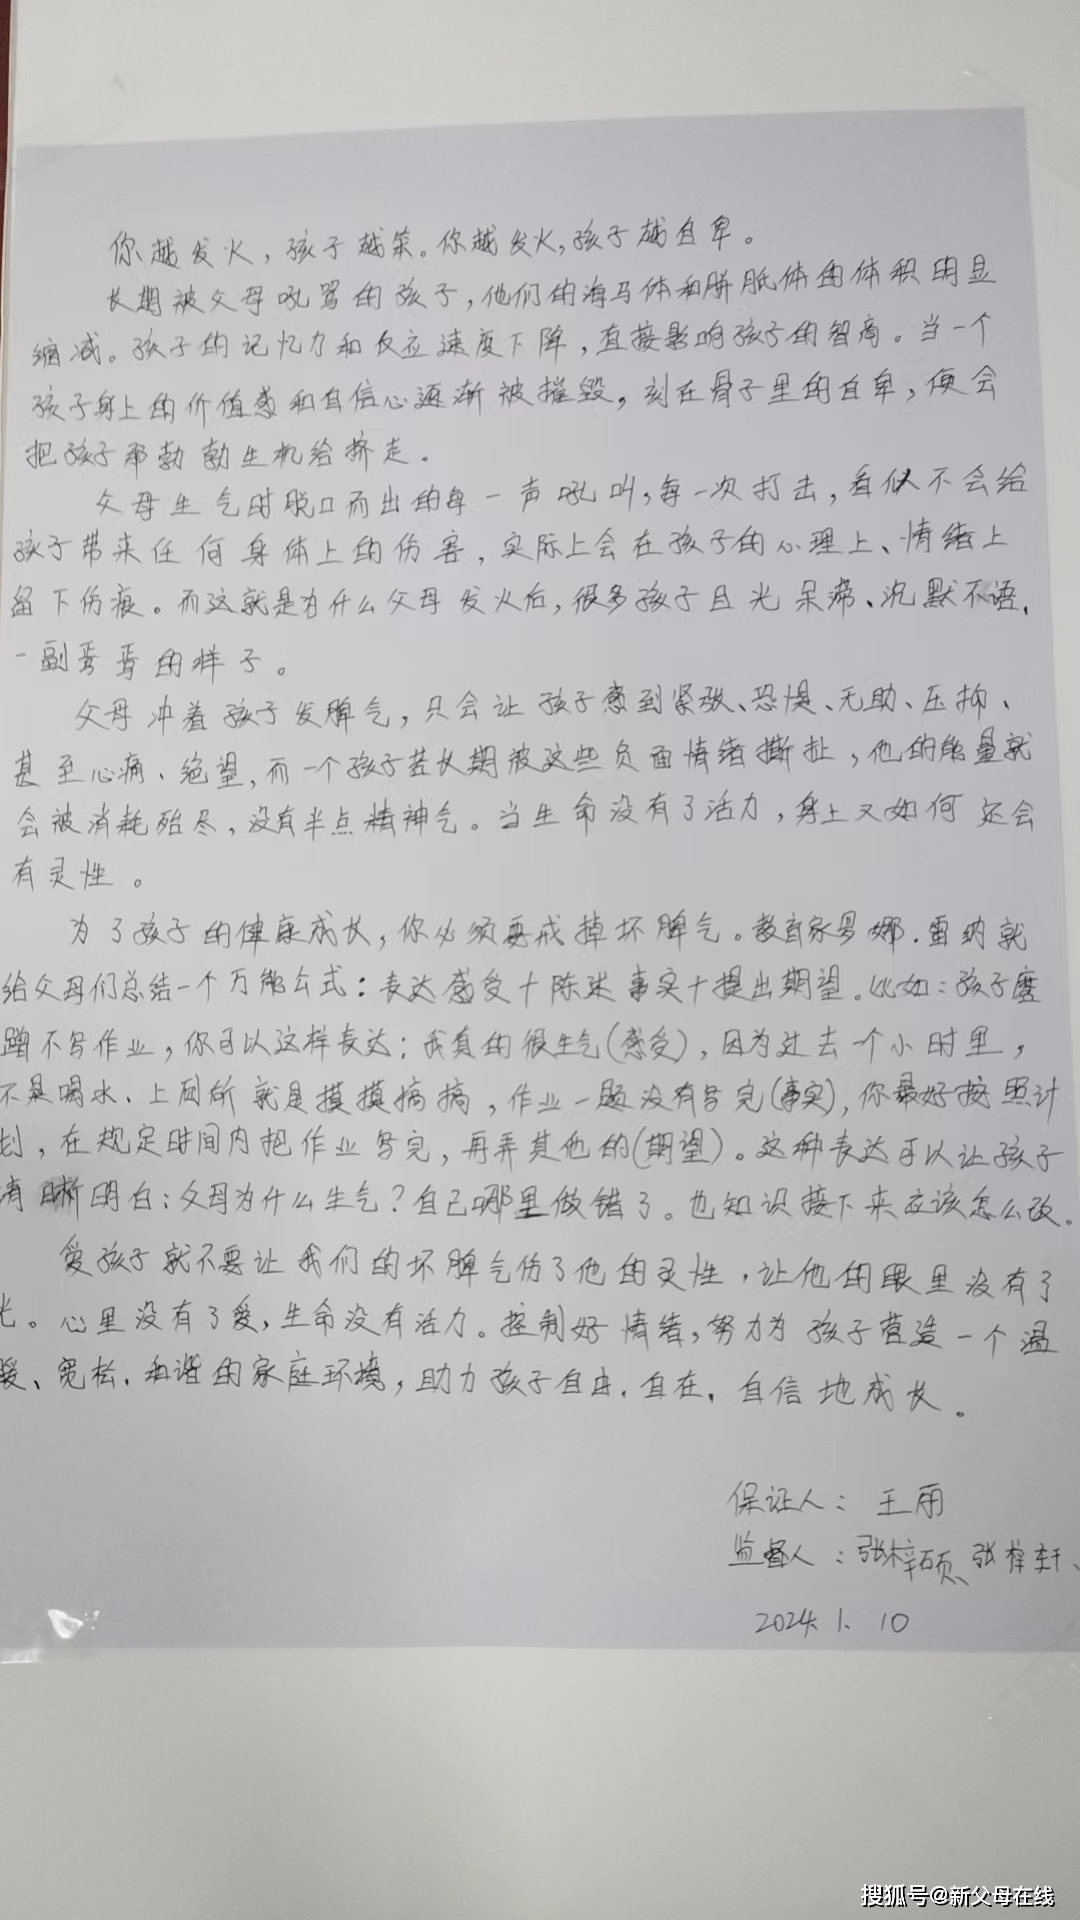 你越发火，孩子越笨。你越发火，孩子越自卑。
长期被父母吼骂的孩子，他们的海马体和胼胝体的体积明显
缩减。孩子的记忆力和反应速度下降，直接影响孩子的智商。当一个
孩子身上的价值感和自信心逐渐被摧毁，刻在骨子里的自卑，便会
把孩子那勃勃生机给挤走。
父母生气时脱口而出的每一声吼叫，每一次打击，看似不会给
孩子带来任何身体上的伤害，实际上会在孩子的心理上、情绪上
留下伤痕。而这就是为什么父母发火后，很多孩子目光呆滞、沉默不语，
一副蔫蔫的样子。
父母冲着孩子发脾气，只会让孩子感到紧张、恐惧、无助、压抑、
甚至心痛、绝望，而一个孩子若长期被这些负面情绪撕扯，他的能量就
会被消耗殆尽，没有半点精神气。当生命没有了活力，身上又如何还会
有灵性。
为了孩子的健康成长，你必须要戒掉坏脾气。教育家罗娜.雷纳就
给父母们总结一个万能公式：表达感受＋陈述事实＋提出期望。比如：孩子磨
蹭不写作业，你可以这样表达：我真的很生气(感受)，因为过去一个小时里，
不是喝水、上厕所就是摸摸搞搞，作业一题没有写完(事实)，你最好按照计
划，在规定时间内把作业写完，再弄其他的(期望)。这种表达可以让孩子
清晰明白：父母为什么生气？自己哪里做错了。也知识接下来应该怎么改。
爱孩子就不要让我们的坏脾气伤了他的灵性，让他的眼里没有了
光。心里没有了爱，生命没有活力。控制好情绪，努力为孩子营造一个温
暖、宽松、和谐的家庭环境，助力孩子自由、自在、自信地成长。
保证人：王雨
监督人：张梓硕、张梓轩、
2024.1.10
搜狐号@新父母在线